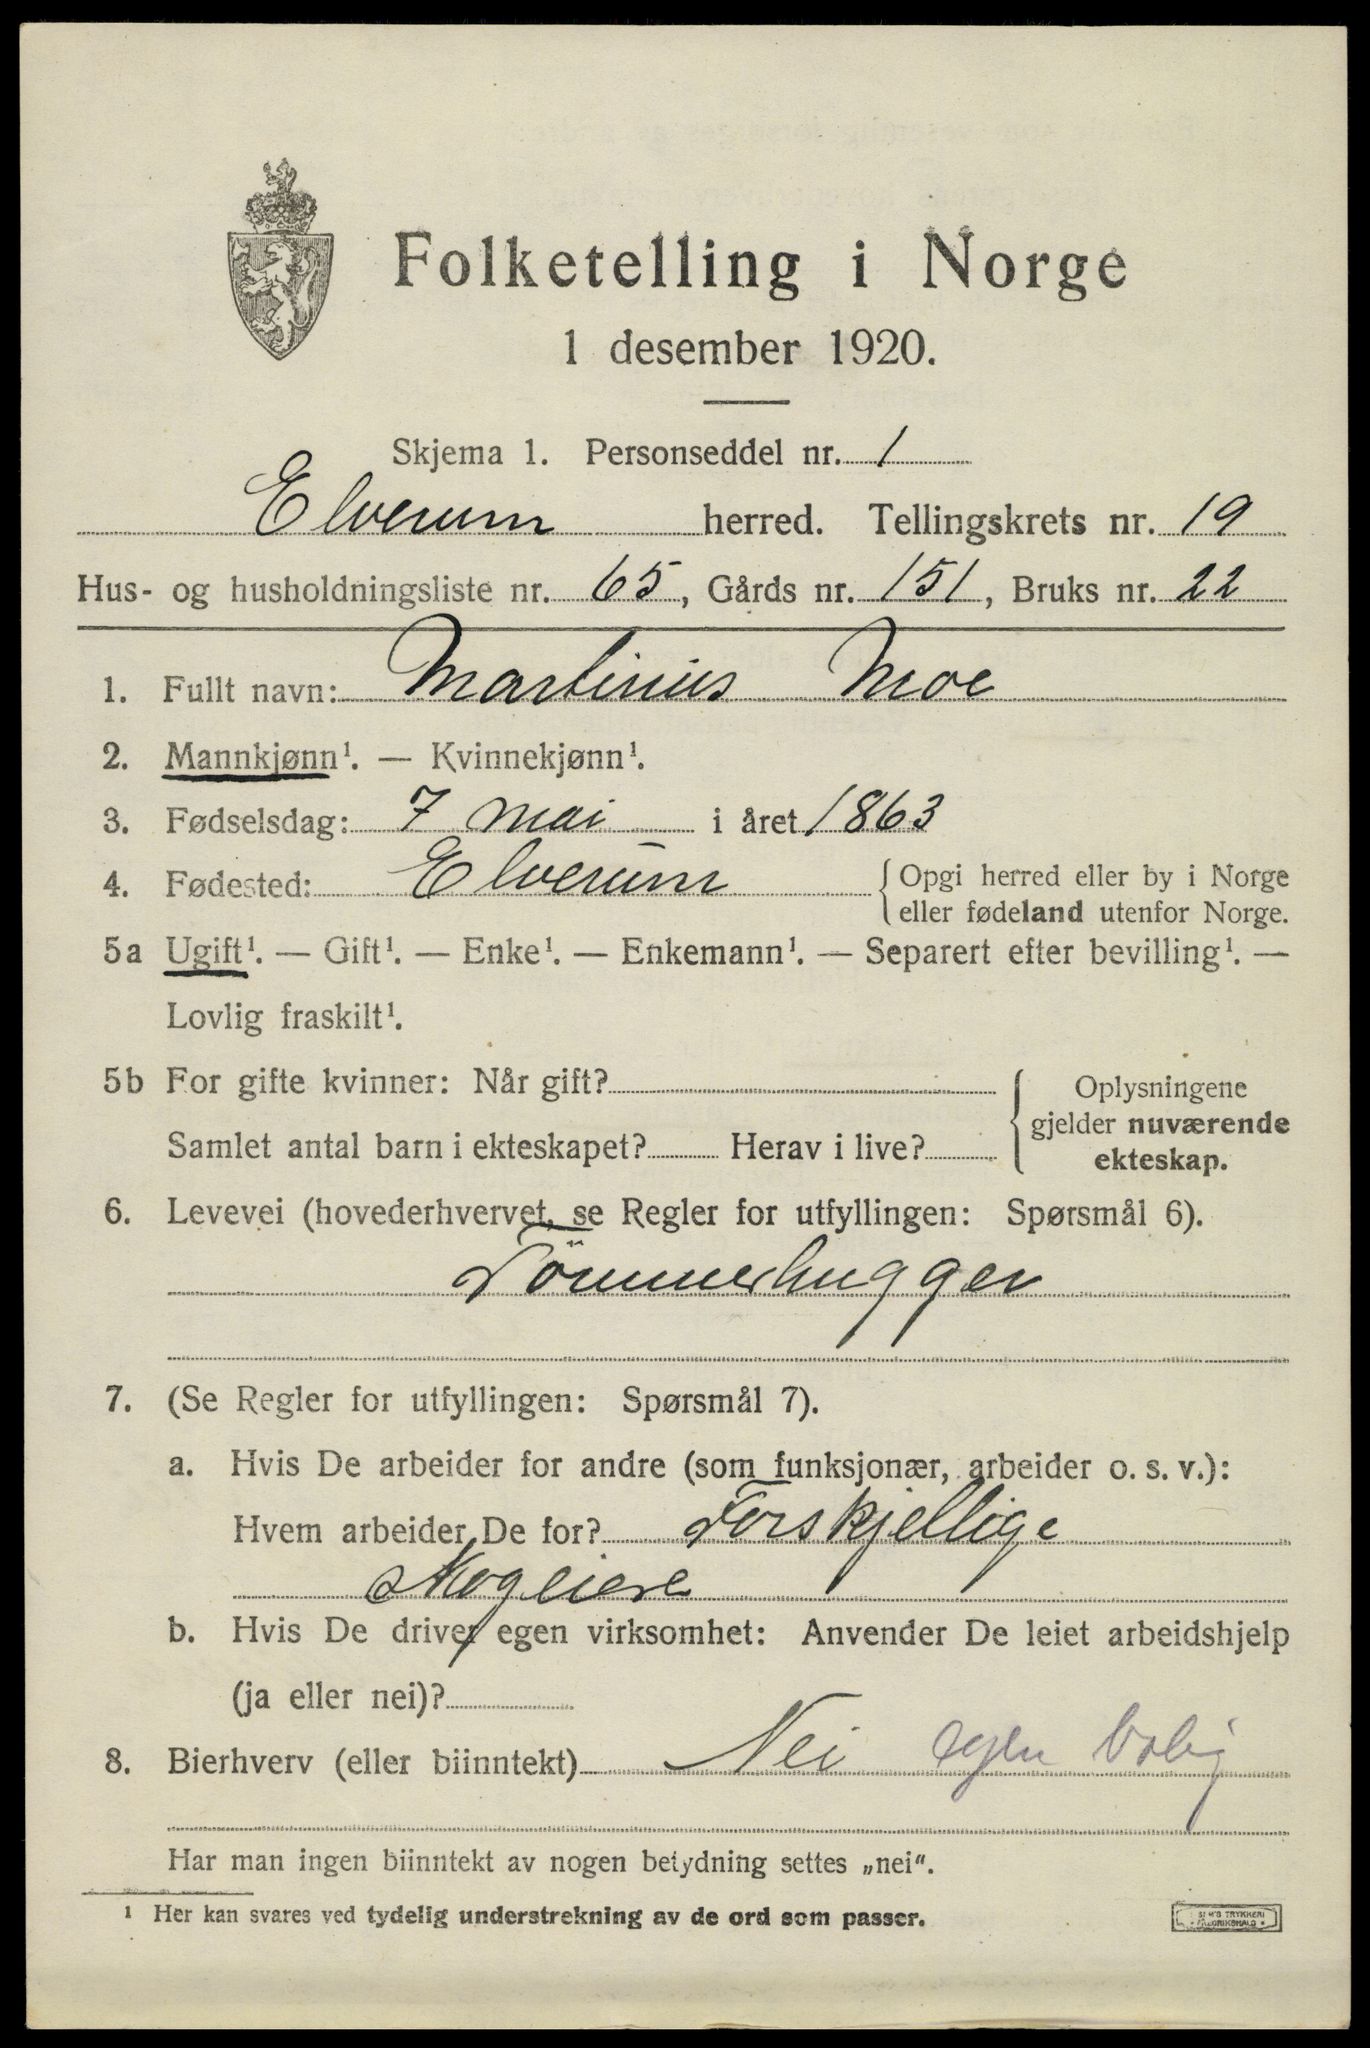 Folketelling i Norge
1 desember 1920.
Skjema 1. Personseddel nr. 1
Elverum herred. Tellingskrets nr. 19
Hus- og husholdningsliste nr. 65, Gårds nr. 151, Bruks nr. 22
1. Fullt navn: Martinius Moe
2. Mannkjønn¹. — Kvinnekjønn¹.
3. Fødselsdag: 7 mai i året 1863
4. Fødested: Elverum { Opgi herred eller by i Norge
eller fødeland utenfor Norge.
5a Ugift¹. — Gift¹. — Enke¹. — Enkemann¹. — Separert efter bevilling¹. —
Lovlig fraskilt¹.
5b For gifte kvinner: Når gift?
Samlet antal barn i ekteskapet? Herav i live?
Oplysningene
gjelder nuværende
ekteskap.
6. Levevei (hovederhvervet, se Regler for utfyllingen: Spørsmål 6).
Tömmerhugger
7. (Se Regler for utfyllingen: Spørsmål 7).
a. Hvis De arbeider for andre (som funksjonær, arbeider o. s. v.):
Hvem arbeider De for? Forskjellige
skogeiere
b. Hvis De driver egen virksomhet: Anvender De leiet arbeidshjelp
(ja eller nei)?
8. Bierhverv (eller biinntekt) Nei egen bolig
Har man ingen biinntekt av nogen betydning settes „nei“.
¹ Her kan svares ved tydelig understrekning av de ord som passer.
TRYKKERI
FREDRIKSHALD